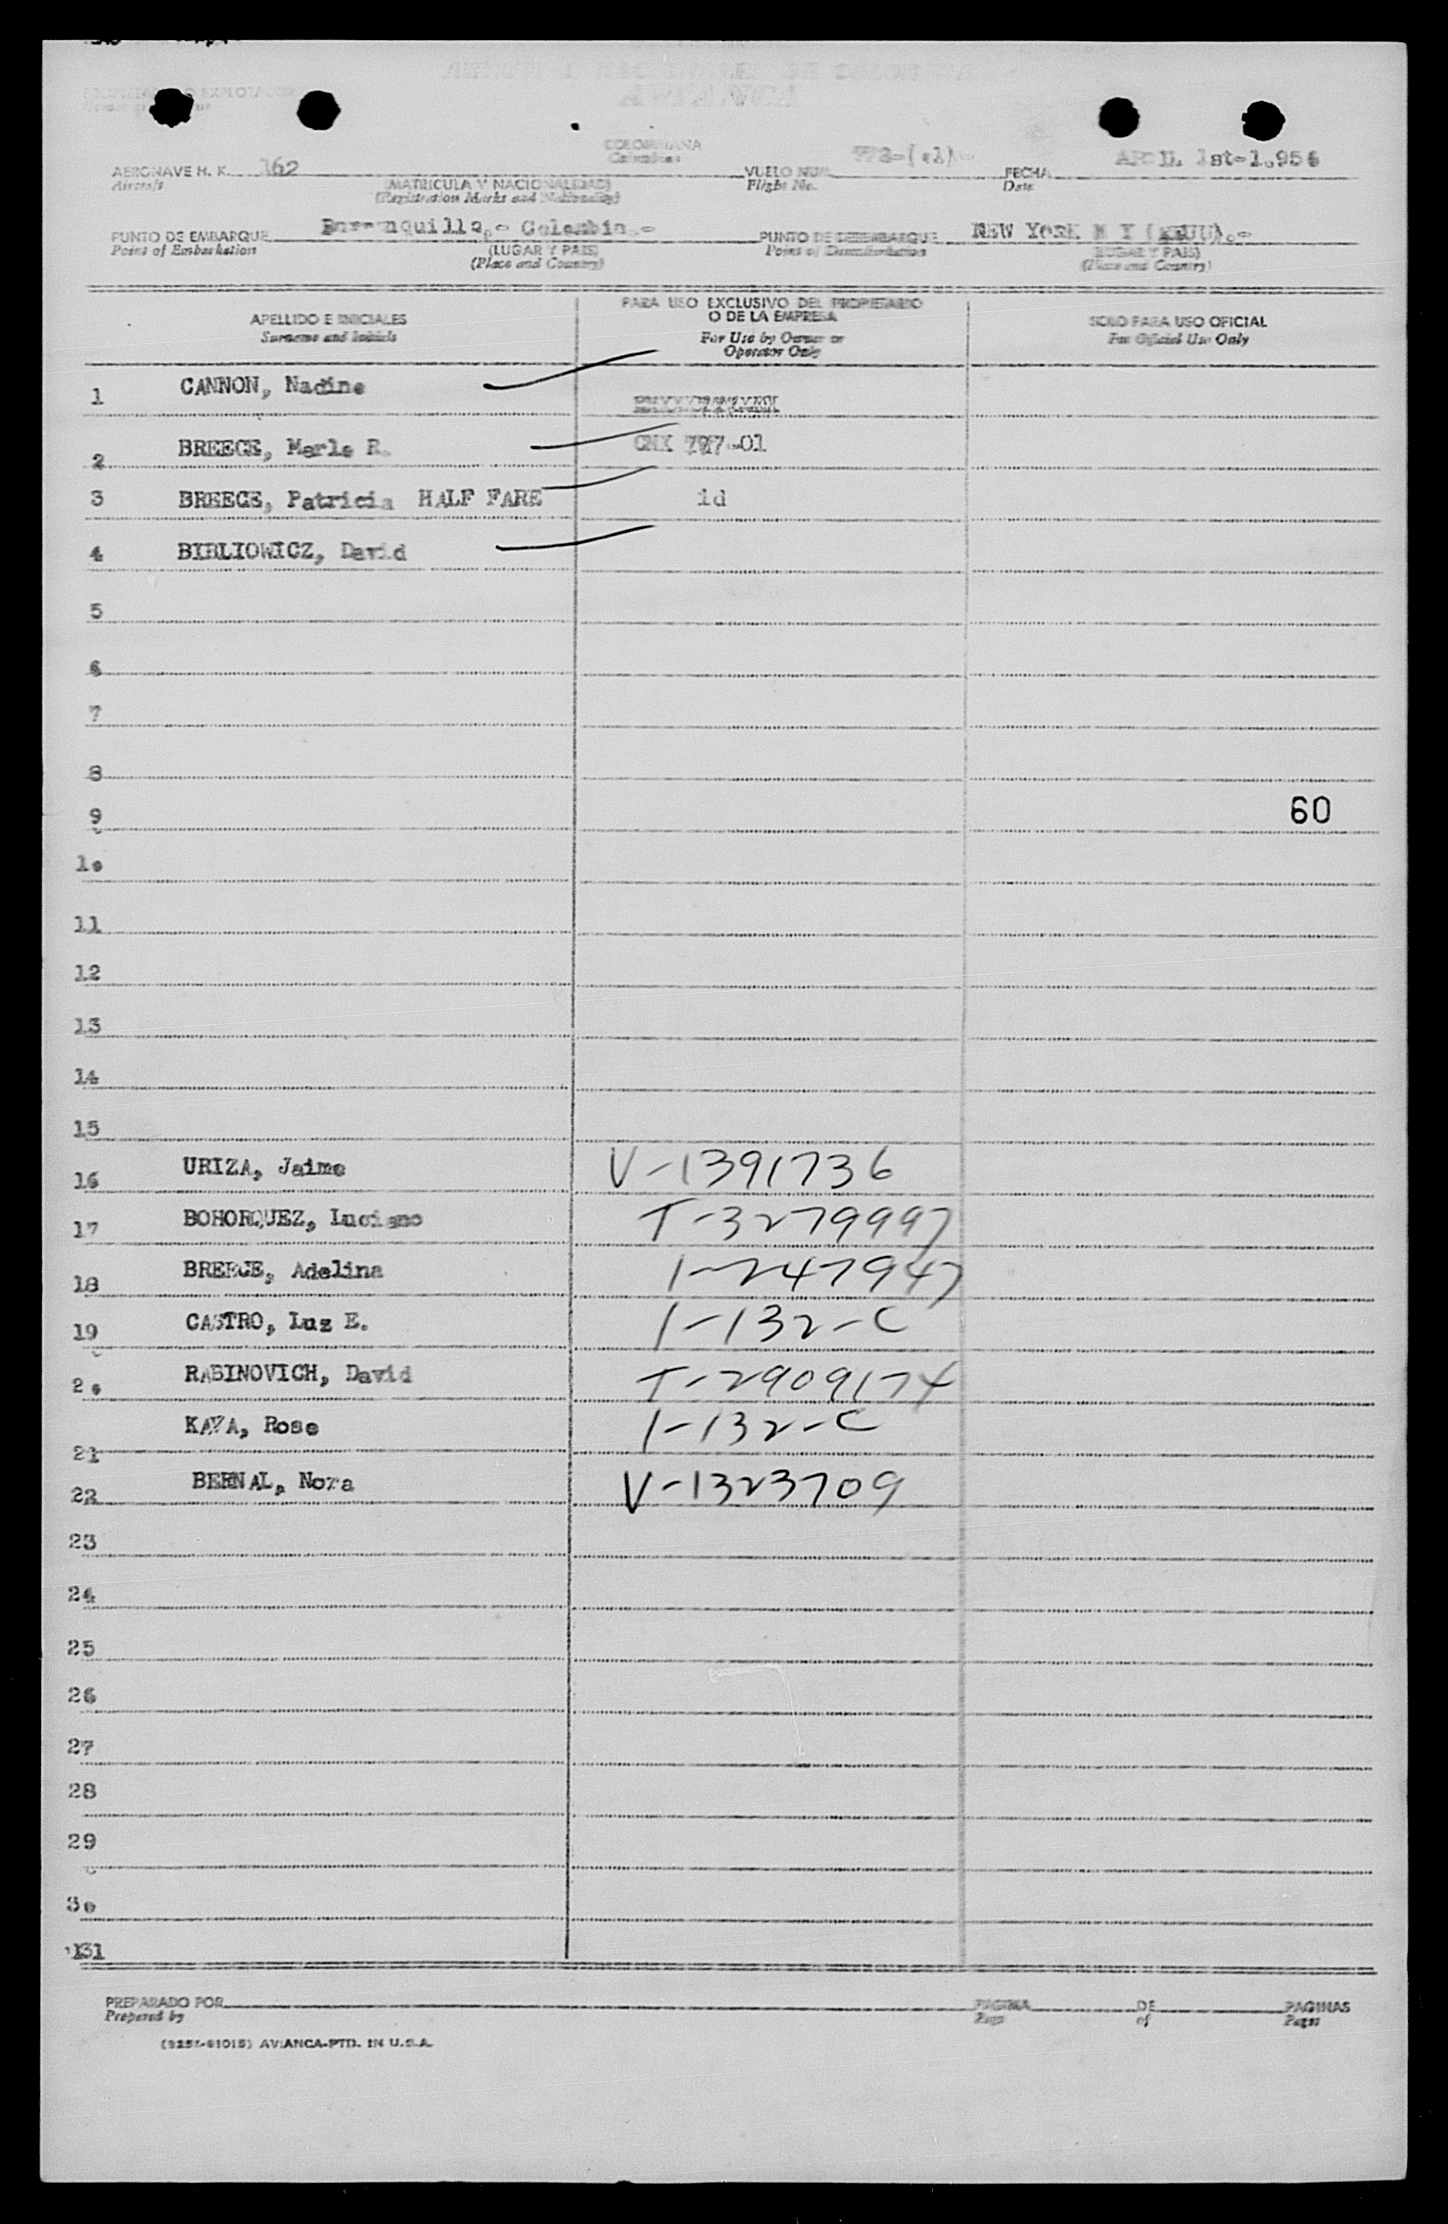 COLOMBIANA
Colombian
AERONAVE H. K. 162 VUELO NUM. FECHA APRIL 1st-1.954
Aircraft (MATRICULA Y NACIONALIDAD) Flight No. Date
(Registration Marks and Nationality)
PUNTO DE EMBARQUE Barranquilla,- Colombia.- PUNTO DE DESEMBARQUE NEW YORK N Y (EEUU).-
Point of Embarkation (LUGAR Y PAIS) Point of Disembarkation (LUGAR Y PAIS)
(Place and Country) (Place and Country)
APELLIDO E INICIALES
Surname and Initials
PARA USO EXCLUSIVO DEL PROPIETARIO
O DE LA EMPRESA
For Use by Owner or
Operator Only
SOLO PARA USO OFICIAL
For Official Use Only
1 CANNON, Nadine
2 BREECE, Merle R. CNX 797-01
3 BREECE, Patricia HALF FARE id
4 BIBLIOWICZ, David
5
6
7
8
9 60
10
11
12
13
14
15
16 URIZA, Jaime V-1391736
17 BOHORQUEZ, Luciano T-3279997
18 BREECE, Adelina 1-247947
19 CASTRO, Luz E. 1-132-C
20 RABINOVICH, David T-2909174
21 KAVA, Rose 1-132-C
22 BERNAL, Nora V-1323709
23
24
25
26
27
28
29
30
31
PREPARADO POR PAGINA DE PAGINAS
Prepared by Page of Pages
AVIANCA-PTD. IN U.S.A.